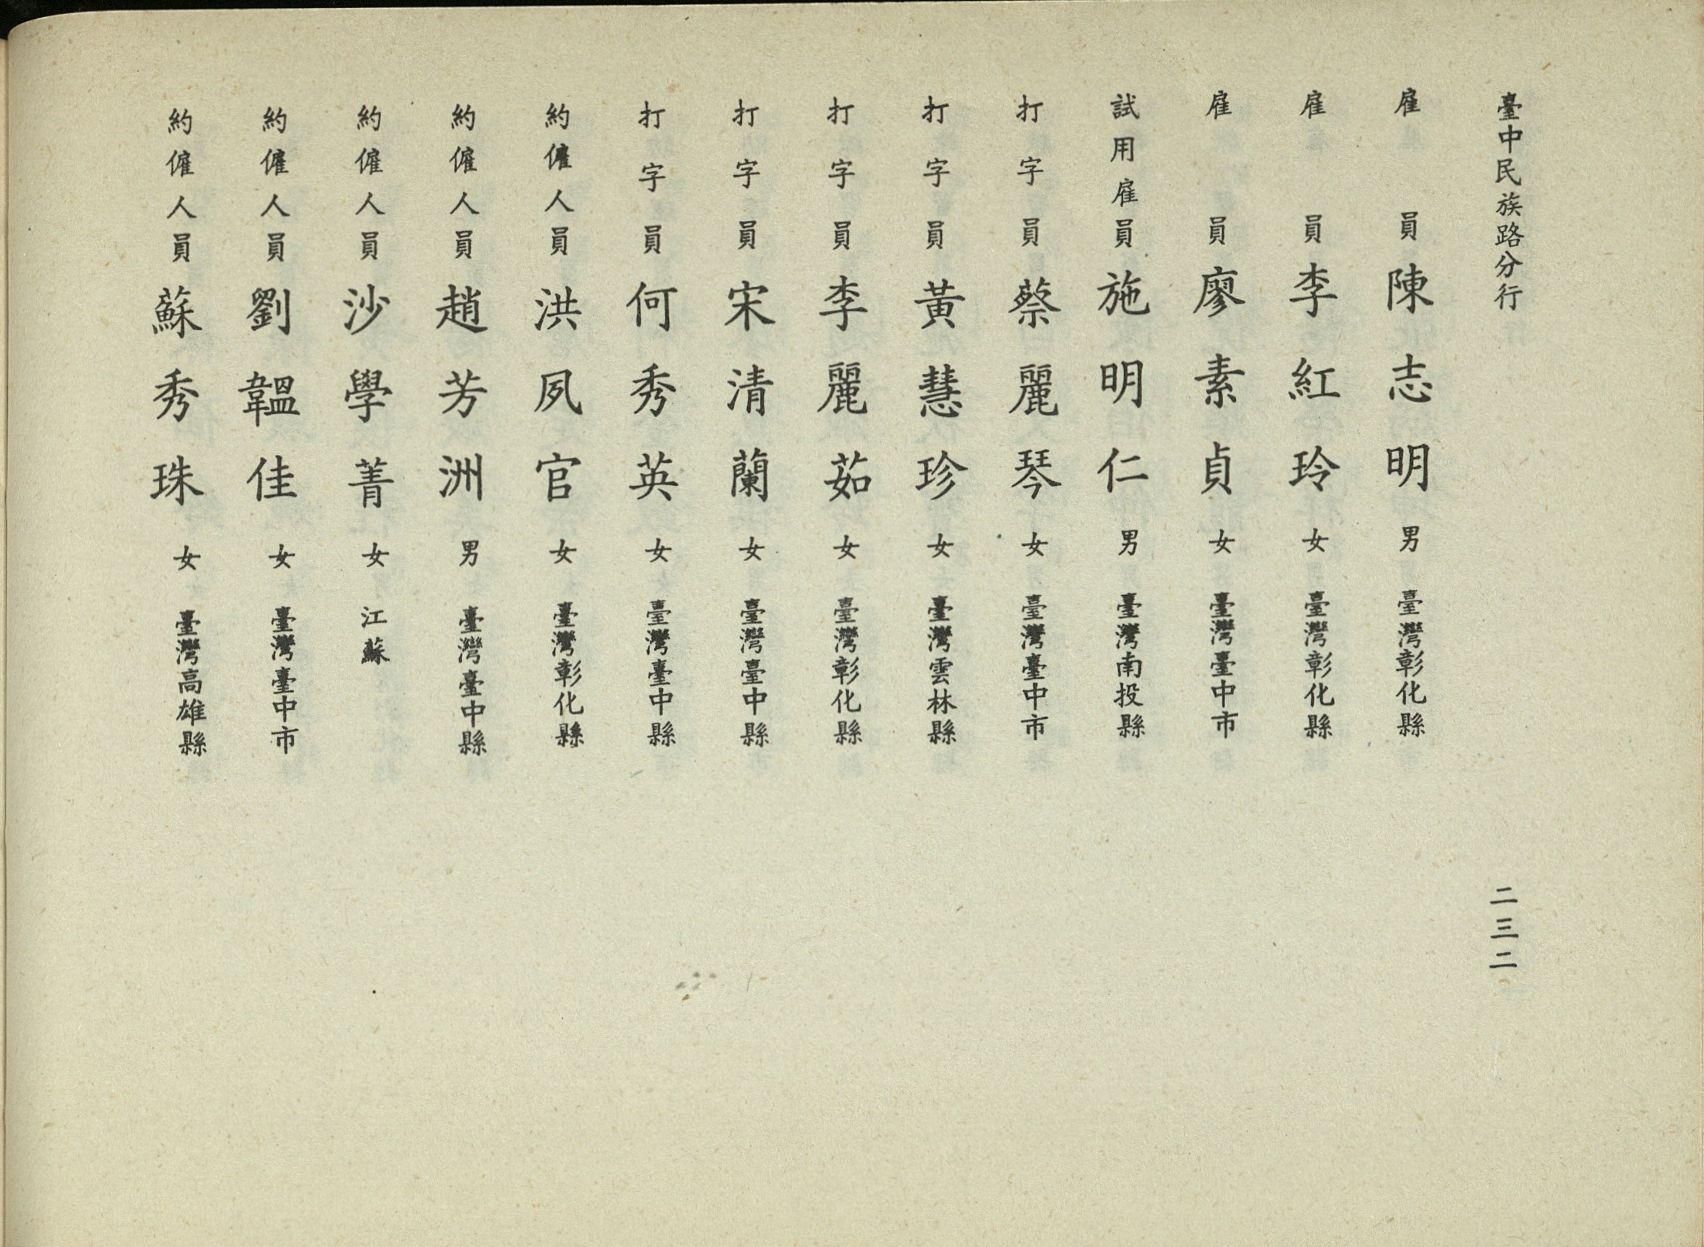 臺中民族路分行 二三二
雇員 陳志明 男 臺灣彰化縣
雇員 李紅玲 女 臺灣彰化縣
雇員 廖素貞 女 臺灣臺中市
試用雇員 施明仁 男 臺灣南投縣
打字員 蔡麗琴 女 臺灣臺中市
打字員 黃慧珍 女 臺灣雲林縣
打字員 李麗茹 女 臺灣彰化縣
打字員 宋清蘭 女 臺灣臺中縣
打字員 何秀英 女 臺灣臺中縣
約僱人員 洪夙官 女 臺灣彰化縣
約僱人員 趙芳洲 男 臺灣臺中縣
約僱人員 沙學菁 女 江蘇
約僱人員 劉韞佳 女 臺灣臺中市
約僱人員 蘇秀珠 女 臺灣高雄縣